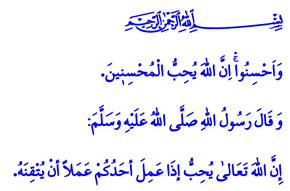 بِسْمِ اللهِ الرَّحْمٰنِ الرَّحِيمِ
وَاَحْسِنُواۚ اِنَّ اللّٰهَ يُحِبُّ الْمُحْسِن۪ينَ.
وَ قَالَ رَسُولُ اللهِ صَلَّى اللهُ عَلَيْهِ وَسَلَّمَ:
إِنَّ اللهَ تَعَالىٰ يُحِبُّ إذَا عَمِلَ أحَدُكُمْ عَمَلاً أنْ يُتْقِنَهُ.